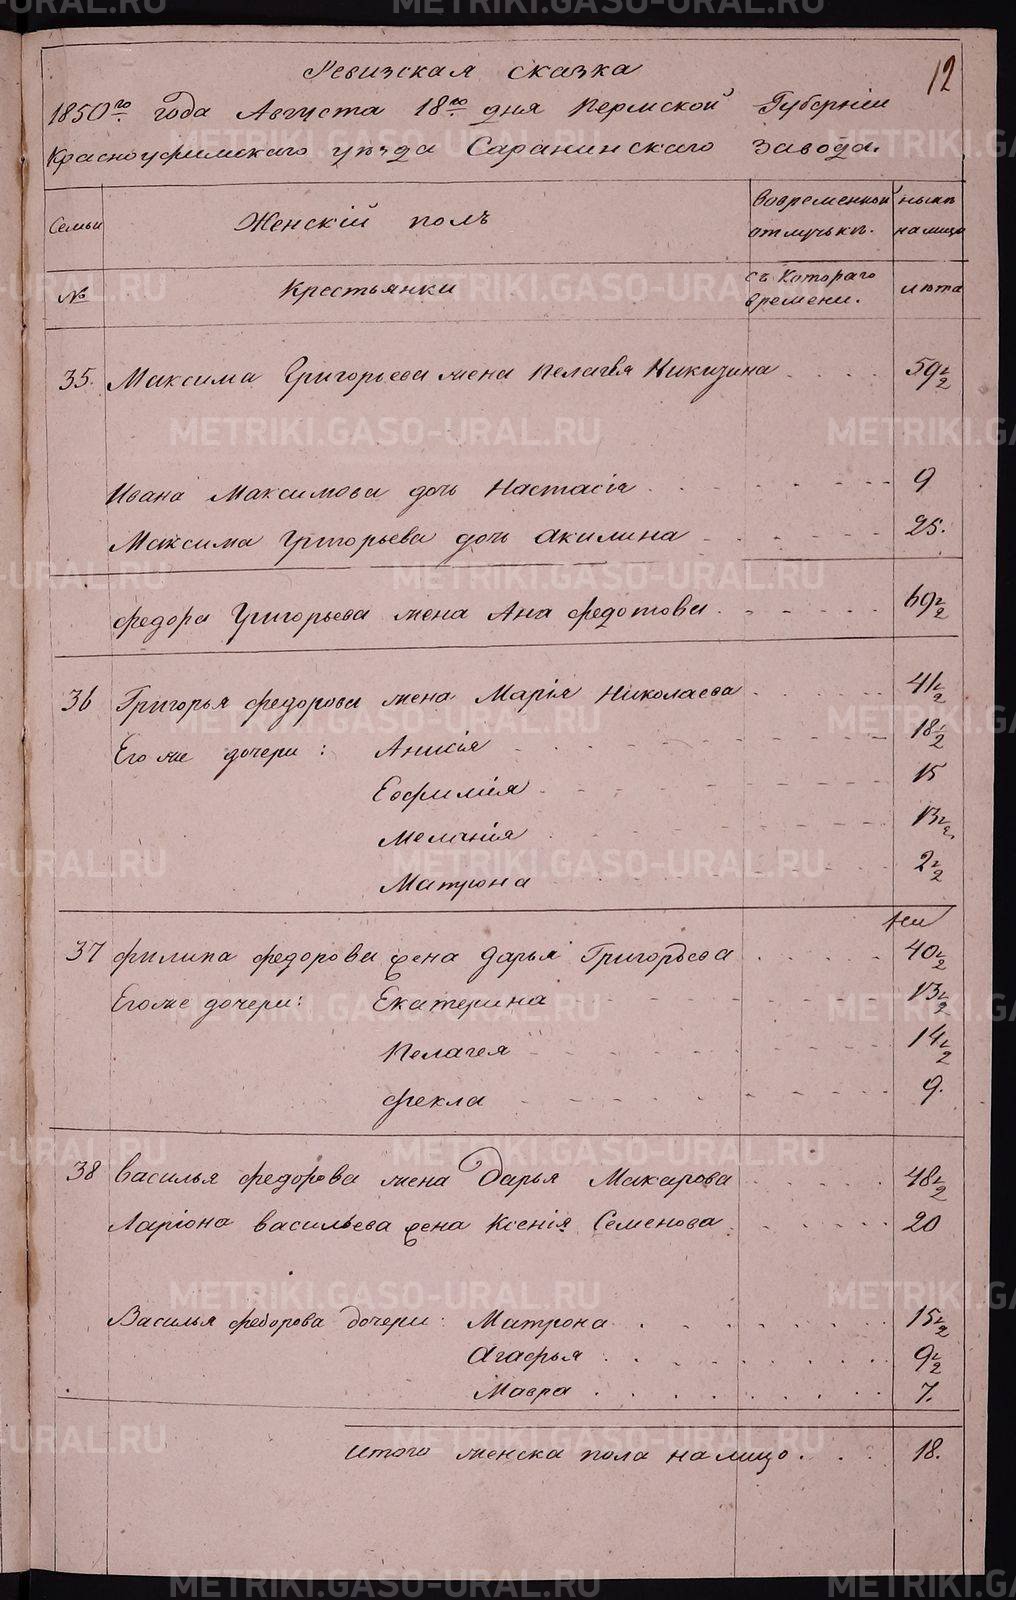 12
Ревизская сказка
1850го года Августа 18го дня Пермской Губернiи
Красноуфимскаго уѣзда Саранинскаго Завода.
Семьи Женскiй полъ Вовременной отлучькѣ. нынѣ налицо
№ Крестьянки съ Котораго времени. лѣта
35. Максима Григорьева жена Пелагея Никизина 59 1/2
Ивана Максимова дочь Настасiя 9
Максима Григорьева дочь Акилина 25.
Федора Григорьева жена Ана Федотова 69 1/2
36 Григорья Федорова жена Марiя Николаева 41 1/2
Его же дочери: Анисiя 18 1/2
Евфимiя 15
Меланiя 13 1/2.
Матрона 2 1/2
37 Филипа Федорова жена Дарья Григорьева 40 1/2
Его же дочери: Екатерина 13 1/2
Пелагея 14 1/2
Фекла 9.
38 Василья Федорова жена Дарья Макарова 48 1/2
Ларiона Васильева жена Ксенiя Семенова 20
Василья Федорова дочери: Матрона 15 1/2
Агафья 9 1/2
Мавра 7.
Итого женска пола налицо 18.
METRIKI.GASO-URAL.RU